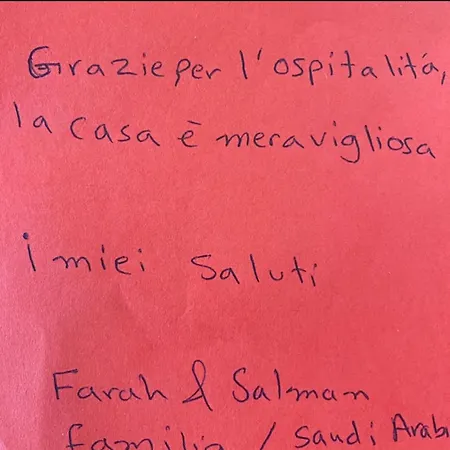 Grazie per l'ospitalitá,
la casa è meravigliosa
i miei saluti
Farah & Salman
familia / Saudi Arab